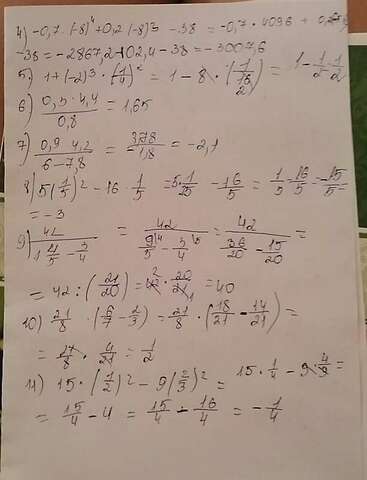 4) -0,7 · (-8)⁴ + 0,2 (-8)³ - 38 = -0,7 · 4096 + 0,2
-38 = -2867,2 - 102,4 - 38 = -3007,6
5) 1 + (-2)³ · (1/4)² = 1 - 8 · (1/16) = 1 - 1/2 = 1/2
6) 0,3 · 4,4 / 0,8 = 1,65
7) 0,9 · 4,2 / 6 - 7,8 = 3,78 / -1,8 = -2,1
8) 5 (1/5)² - 16 · 1/5 = 5 · 1/25 - 16/5 = 1/5 - 16/5 = -15/5 =
= -3
9) 42 / 1 4/5 - 3/4 = 42 / 9/5 - 3/4 = 42 / 36/20 - 15/20 =
= 42 : (21/20) = 42 · 20/21 = 40
10) 21/8 · (6/7 - 2/3) = 21/8 · (18/21 - 14/21) =
= 21/8 · 4/21 = 1/2
11) 15 · (1/2)² - 9 (2/3)² = 15 · 1/4 - 9 · 4/9 =
= 15/4 - 4 = 15/4 - 16/4 = - 1/4